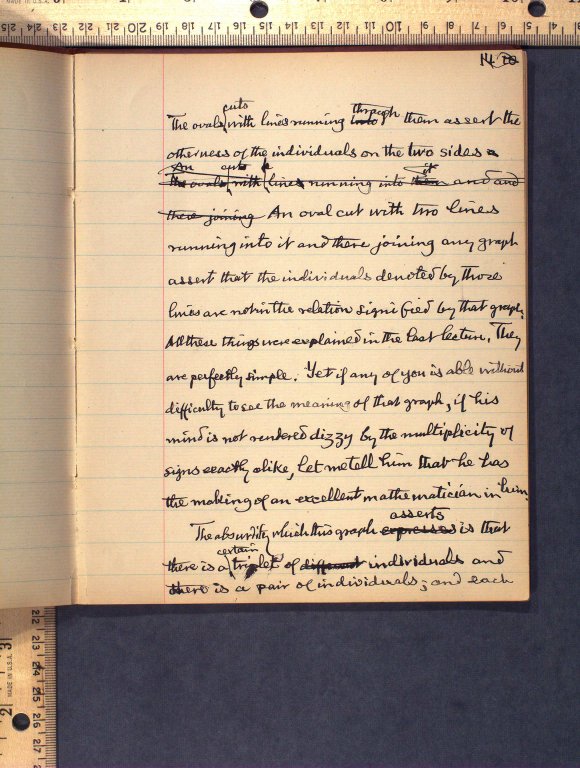 14
The ovals cuts with lines running into through them assert the
otherness of the individuals on the two sides
the ovals An cuts with lines running into them it and and
there joining An oval cut with two lines
running into it and there joining any graph
assert that the individuals denoted by those
lines are not in the relation signified by that graph.
All these things were explained in the last lecture. They
are perfectly simple. Yet if any of you is able without
difficulty to see the meaning of that graph, if his
mind is not rendered dizzy by the multiplicity of
signs exactly alike, let me tell him that he has
the making of an excellent mathematician in him.
The absurdity which this graph expresses asserts is that
there is a certain triplet of different individuals and
there is a pair of individuals; and each
MADE IN U.S.A.